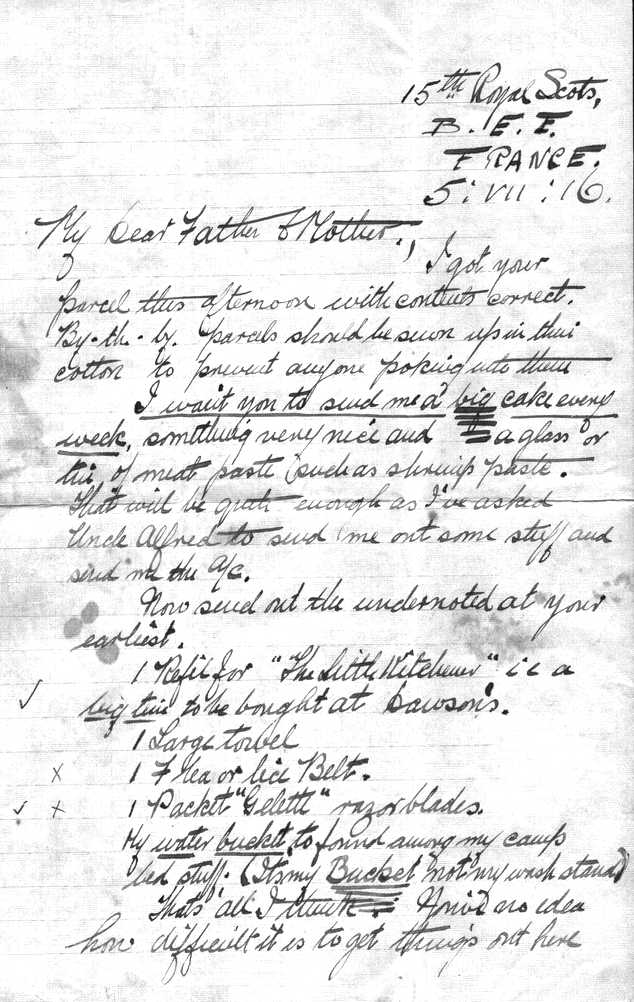 15th Royal Scots,
B. E. F.
FRANCE.
5:VII:16.
My Dear Father & Mother.,
I got your
parcel this afternoon with contents correct.
By-th-by. parcels should be sewn up in their
cotton to prevent anyone poking into them
I want you to send me a big cake every
week, something very nice and a glass or
tin of meat paste (such as shrimp paste.
That will be quite enough as I've asked
Uncle Alfred to send me out some stuff and
send me the a/c.
Now send out the undernoted at your
earliest.
1 Refil for "The Little Kitchener" i e a
big tin to be bought at Dawson's.
1 Large towel
1 Flea or lice Belt.
1 Packet "Gelett" razor blades.
My water bucket to found among my camp
bed stuff. (Its my Bucket not my wash stand)
That's all I think. You'd no idea
how difficult it is to get things out here